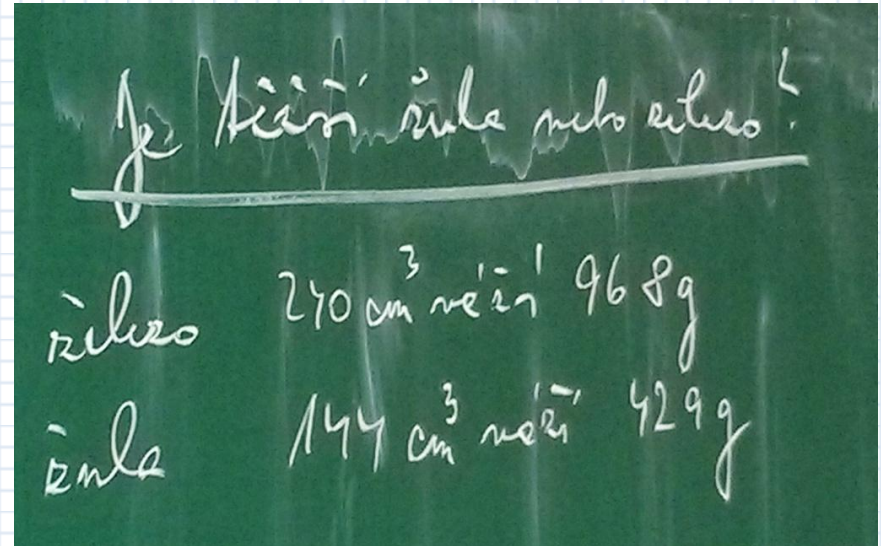 Je těžší žula nebo železo?
železo 240 cm³ váží 968g
žula 144 cm³ váží 429g